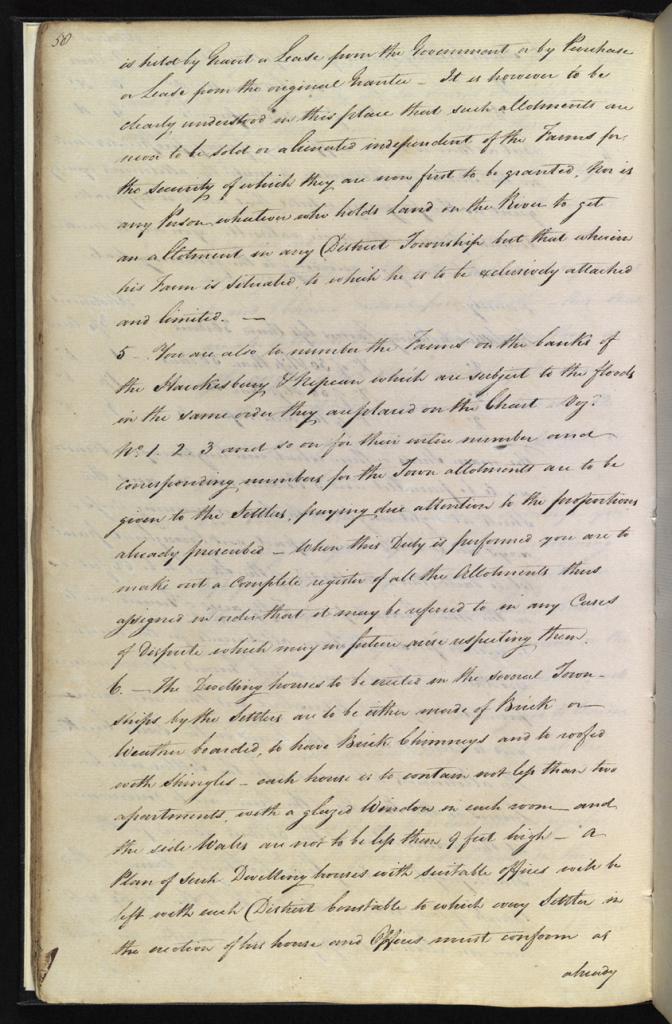 50
is held by Grant or Lease from the Government or by Purchase
or Lease from the original Grantee – It is however to be
clearly understood in this place that such allotments are
never to be sold or alienated independent of the Farms for
the security of which they are now first to be granted, Nor is
any Person whatever who holds Land on the River to get
an allotment in any District Township but that wherein
his Farm is situated, to which he is to be exclusively attached
and limited. —
5 – You are also to number the Farms on the banks of
the Hawkesbury & Nepean which are subject to the floods
in the same order they are placed on the Chart Vizt.
No. 1. 2. 3 and so on for their entire number and
corresponding numbers for the Town allotments are to be
given to the Settlers, paying due attention to the proportions
already prescribed – When this Duty is performed you are to
make out a Complete register of all the Allotments thus
assigned in order that it may be referred to in any Cases
of Dispute which may in future arise respecting them.
6. – The Dwelling houses to be erected in the several Town-
ships by the Settlers are to be either made of Brick or
Weather boarded, to have Brick Chimneys and to roofed
with Shingles – each house is to contain not less than two
apartments, with a glazed Window in each room – and
the side Walls are not to be less than 9 feet high – A
Plan of such Dwelling houses with suitable offices will be
left with each District Constable to which every Settler in
the erection of his house and Offices must conform as
already